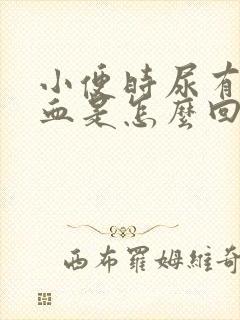 小便時尿有
血是怎麼回
西布羅姆維奇